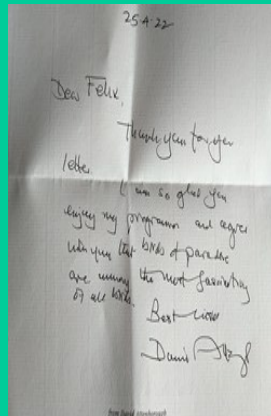 25.4.22
Dear Felix,
Thank you for your
letter.
I am so glad you
enjoy my programmes and agree
with you that birds of paradise
are among the most fascinating
of all birds.
Best wishes
David
from David Attenborough